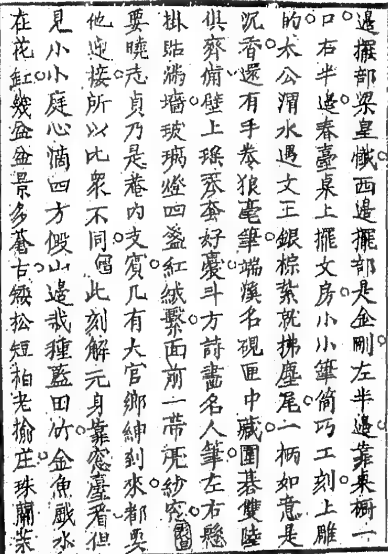 邉擺部梁皇懺西邉擺部是金剛左半邉靠來橱一
口右半邉春臺桌上擺文房小小筆筒巧工刻上雕
的太公渭水遇文王銀棕紮就拂塵尾一柄如意是
沉香還有手卷狼毫筆端溪名硯匣中藏圍碁雙陸
俱齊俻壁上瑶琴套好囊斗方詩畫名人筆左右懸
掛貼滿墻玻璃燈四盞紅絨繫面前一帶亮紗窓
要曉志貞乃是菴内支賓凡有大官鄉紳到來都要
他迎接所以比衆不同 此刻解元身靠窓臺看但
見小小庭心滴四方假山邉栽種藍田竹金魚戲水
在花缸幾盆盆景多蒼古矮松短栢老榆庄珠蘭茉